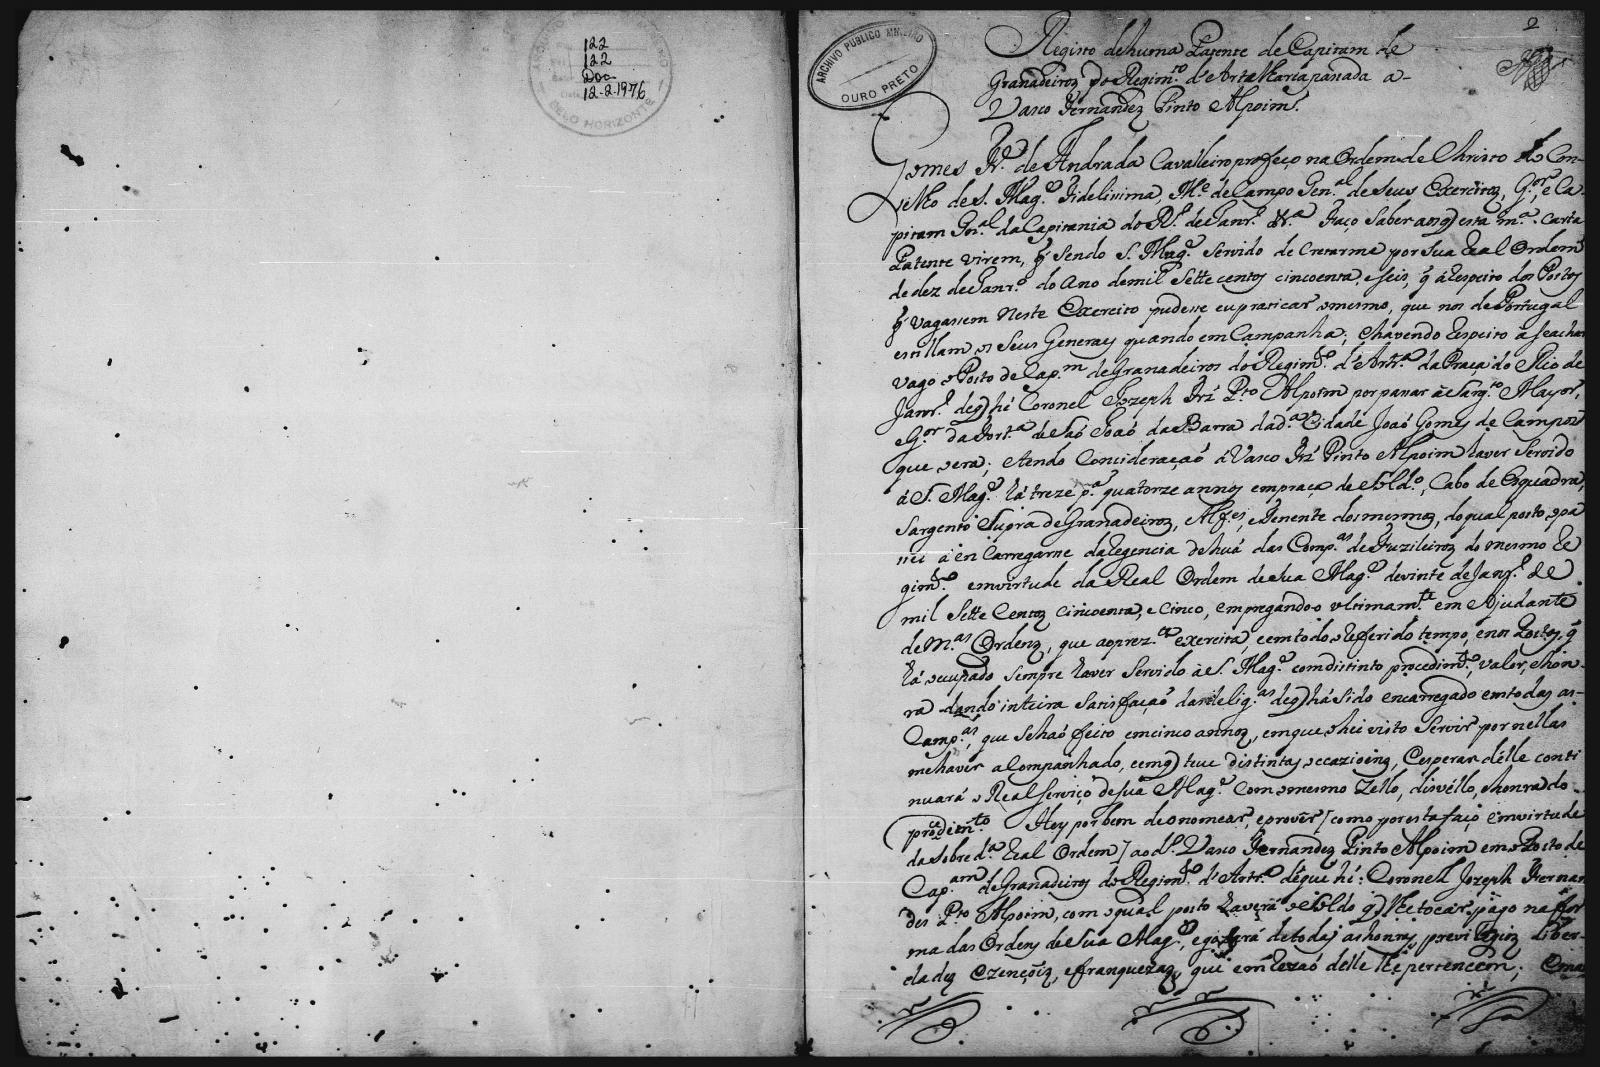 122
122
Doc
12-2-1976
BELO HORIZONTE
ARCHIVO PUBLICO MINEIRO
OURO PRETO
2
Registo dehuma Patente de Capitam de
Granadeiros do Regimto. d'Artalharia passada a-
Vasco Fernandez Pinto Alpoim.
Gomes Fro. de Andrada Cavalleiro profeço na Ordem de Christo do Con-
selho de S. Mage. Fidelissima, Me. de Campo Genal. de seus Exercitos, Gor. e Ca-
pitam Genal. da Capitania do Ro. de Janro. &a. Faço saber aos q esta ma. Carta
Patente virem, q sendo S. Mage. servido decretarme por sua Real Ordem
de dez de Janro. do ano demil sette centos cincoenta, eseis, q árespeito dos Postos
q vagassem neste Exercito pudesse eu praticar omesmo, que nos de Portugal
estillam os seus Generaes quando em Campanha; ehavendo respeito áseachar
vago oPosto de Capm. de Granadeiros do Regimto. d'Artra. da Praça do Rio de
Janro. deq hé Coronel Jozeph Frz Pto. Alpoim por passar áSargto. Mayor,
eGor. da Forta. de Saó Joaó da Barra dada. Cidade Joaó Gomes de Campos
que oera; etendo Consideraçaó á Vasco Frz Pinto Alpoim haver servido
á S. Mage. há treze pa. quatorze annos empraça de Soldo., Cabo de Esquadra,
Sargento Supra de Granadeiros, Alfes., eTenente dosmesmos, doqual posto opa
ssei á en Carregarne daRegencia dehuá das Compas. de Fuzileiros do mesmo Re
gimto. emvirtude da Real Ordem desua Mage. devinte de Janro. de
mil sette Centos cincoenta, e cinco, empregandoo ultimamte. em Ajudante
de Mas. Ordens, que aoprezte. exercita, eemtodo oReferido tempo, enos Postos, q
há ocupado sempre haver servido á S. Mage. comdistinto procedimto., valor, ehon-
ra dando inteira satisfaçaó dasdeligas. deq hásido encarregado emtodas as-
Campas., que sehaó feito emcinco annos, emque ohei visto servir por nellas
mehaver acompanhado, eemq teve distintas occazioens, Cesperar délle conti
nuará o Real serviço desua Mage. Com omesmo Zello, disvéllo, ehonrado-
procedimto. Hey por bem deonomear, eprover [como poresta faço emvirtude
da sobreda. Real Ordem] aodo. Vasco Fernandez Pinto Alpoim em oPosto de
Capam. de Granadeiros do Regimto. d'Artra. déque hé: Coronell Jozeph Fernan
des Pto. Alpoim, com oqual posto haverá oSoldo q lhe tocar pago nafor
ma das Ordens desua Mage., egozará detodas ashonras, previlegios, liber-
dades Ezençoiz, efranquezas, que em Rezaó delle lhe pertencem; Ema